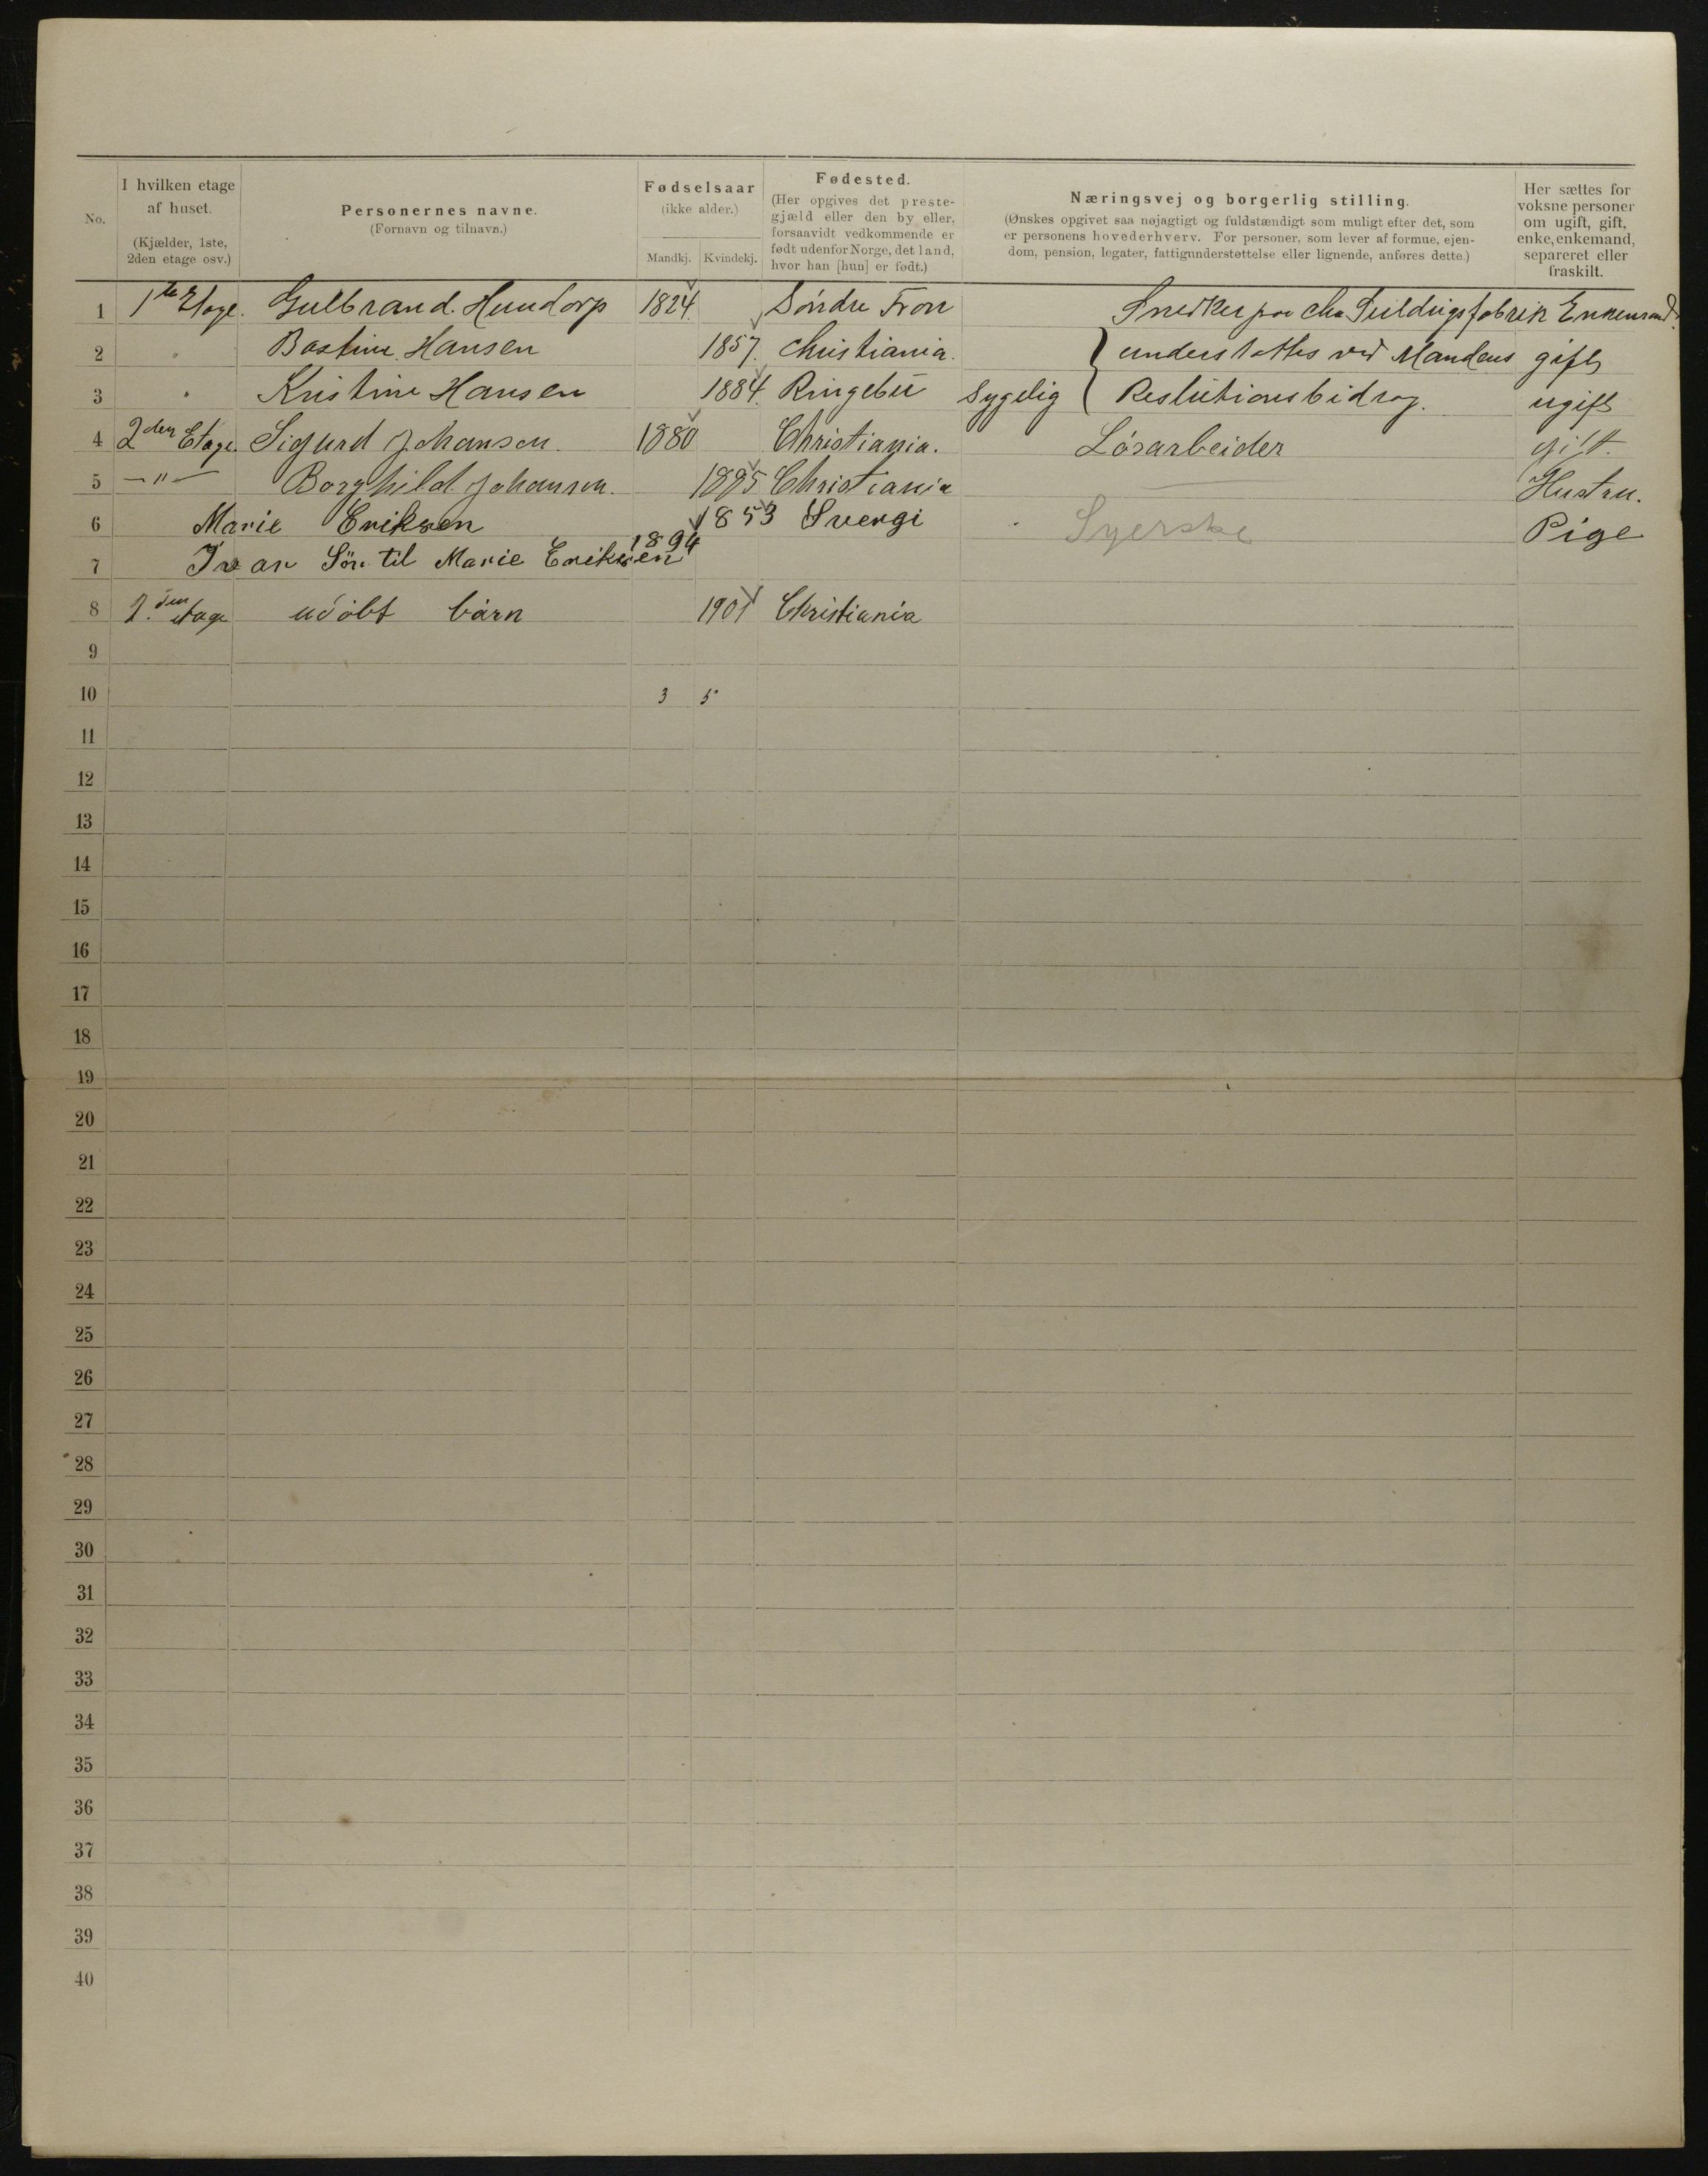 No.
I hvilken etage af huset.
(Kjælder, 1ste, 2den etage osv.)
Personernes navne.
(Fornavn og tilnavn.)
Fødselsaar
(ikke alder.)
Mandkj. Kvindekj.
Fødested.
(Her opgives det prestegjæld eller den by eller, forsaavidt vedkommende er født udenfor Norge, det land, hvor han [hun] er født.)
Næringsvej og borgerlig stilling.
(Ønskes opgivet saa nøjagtigt og fuldstændigt som muligt efter det, som er personens hovederhverv. For personer, som lever af formue, ejendom, pension, legater, fattigunderstøttelse eller lignende, anføres dette.)
Her sættes for voksne personer om ugift, gift, enke, enkemand, separeret eller fraskilt.
1 1ste Etage. Gulbrand. Hundorp 1824. Söndre Fron Snedker paa Enkemand.
2 " Bastine Hansen 1857. Christiania. understøttes ved Mandens gift
3 " Kristine Hansen 1884. Ringebu Sygelig bidrag. ugift
4 2den Etage. Sigurd Johansen. 1880 Christiania. Løsarbeider gift.
5 —"— Borghild. Johansen. Christiania Hustru.
6 Marie Eriksen 1853 Svergi Syerske Pige
7 Ivar Sön til Marie Eriksen 1894
8 2.den etage udøbt barn 1901 Christiania
9
10 3 5
11
12
13
14
15
16
17
18
19
20
21
22
23
24
25
26
27
28
29
30
31
32
33
34
35
36
37
38
39
40